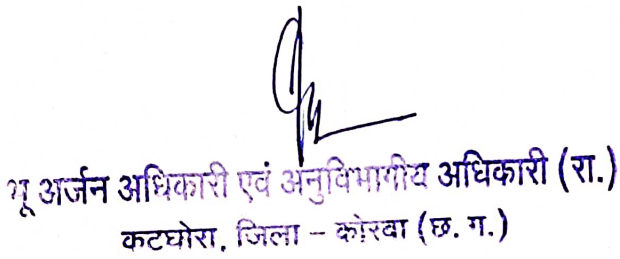 भू अर्जन अधिकारी एवं अनुविभागीय अधिकारी (रा.)
कटघोरा, जिला – कोरबा (छ. ग.)